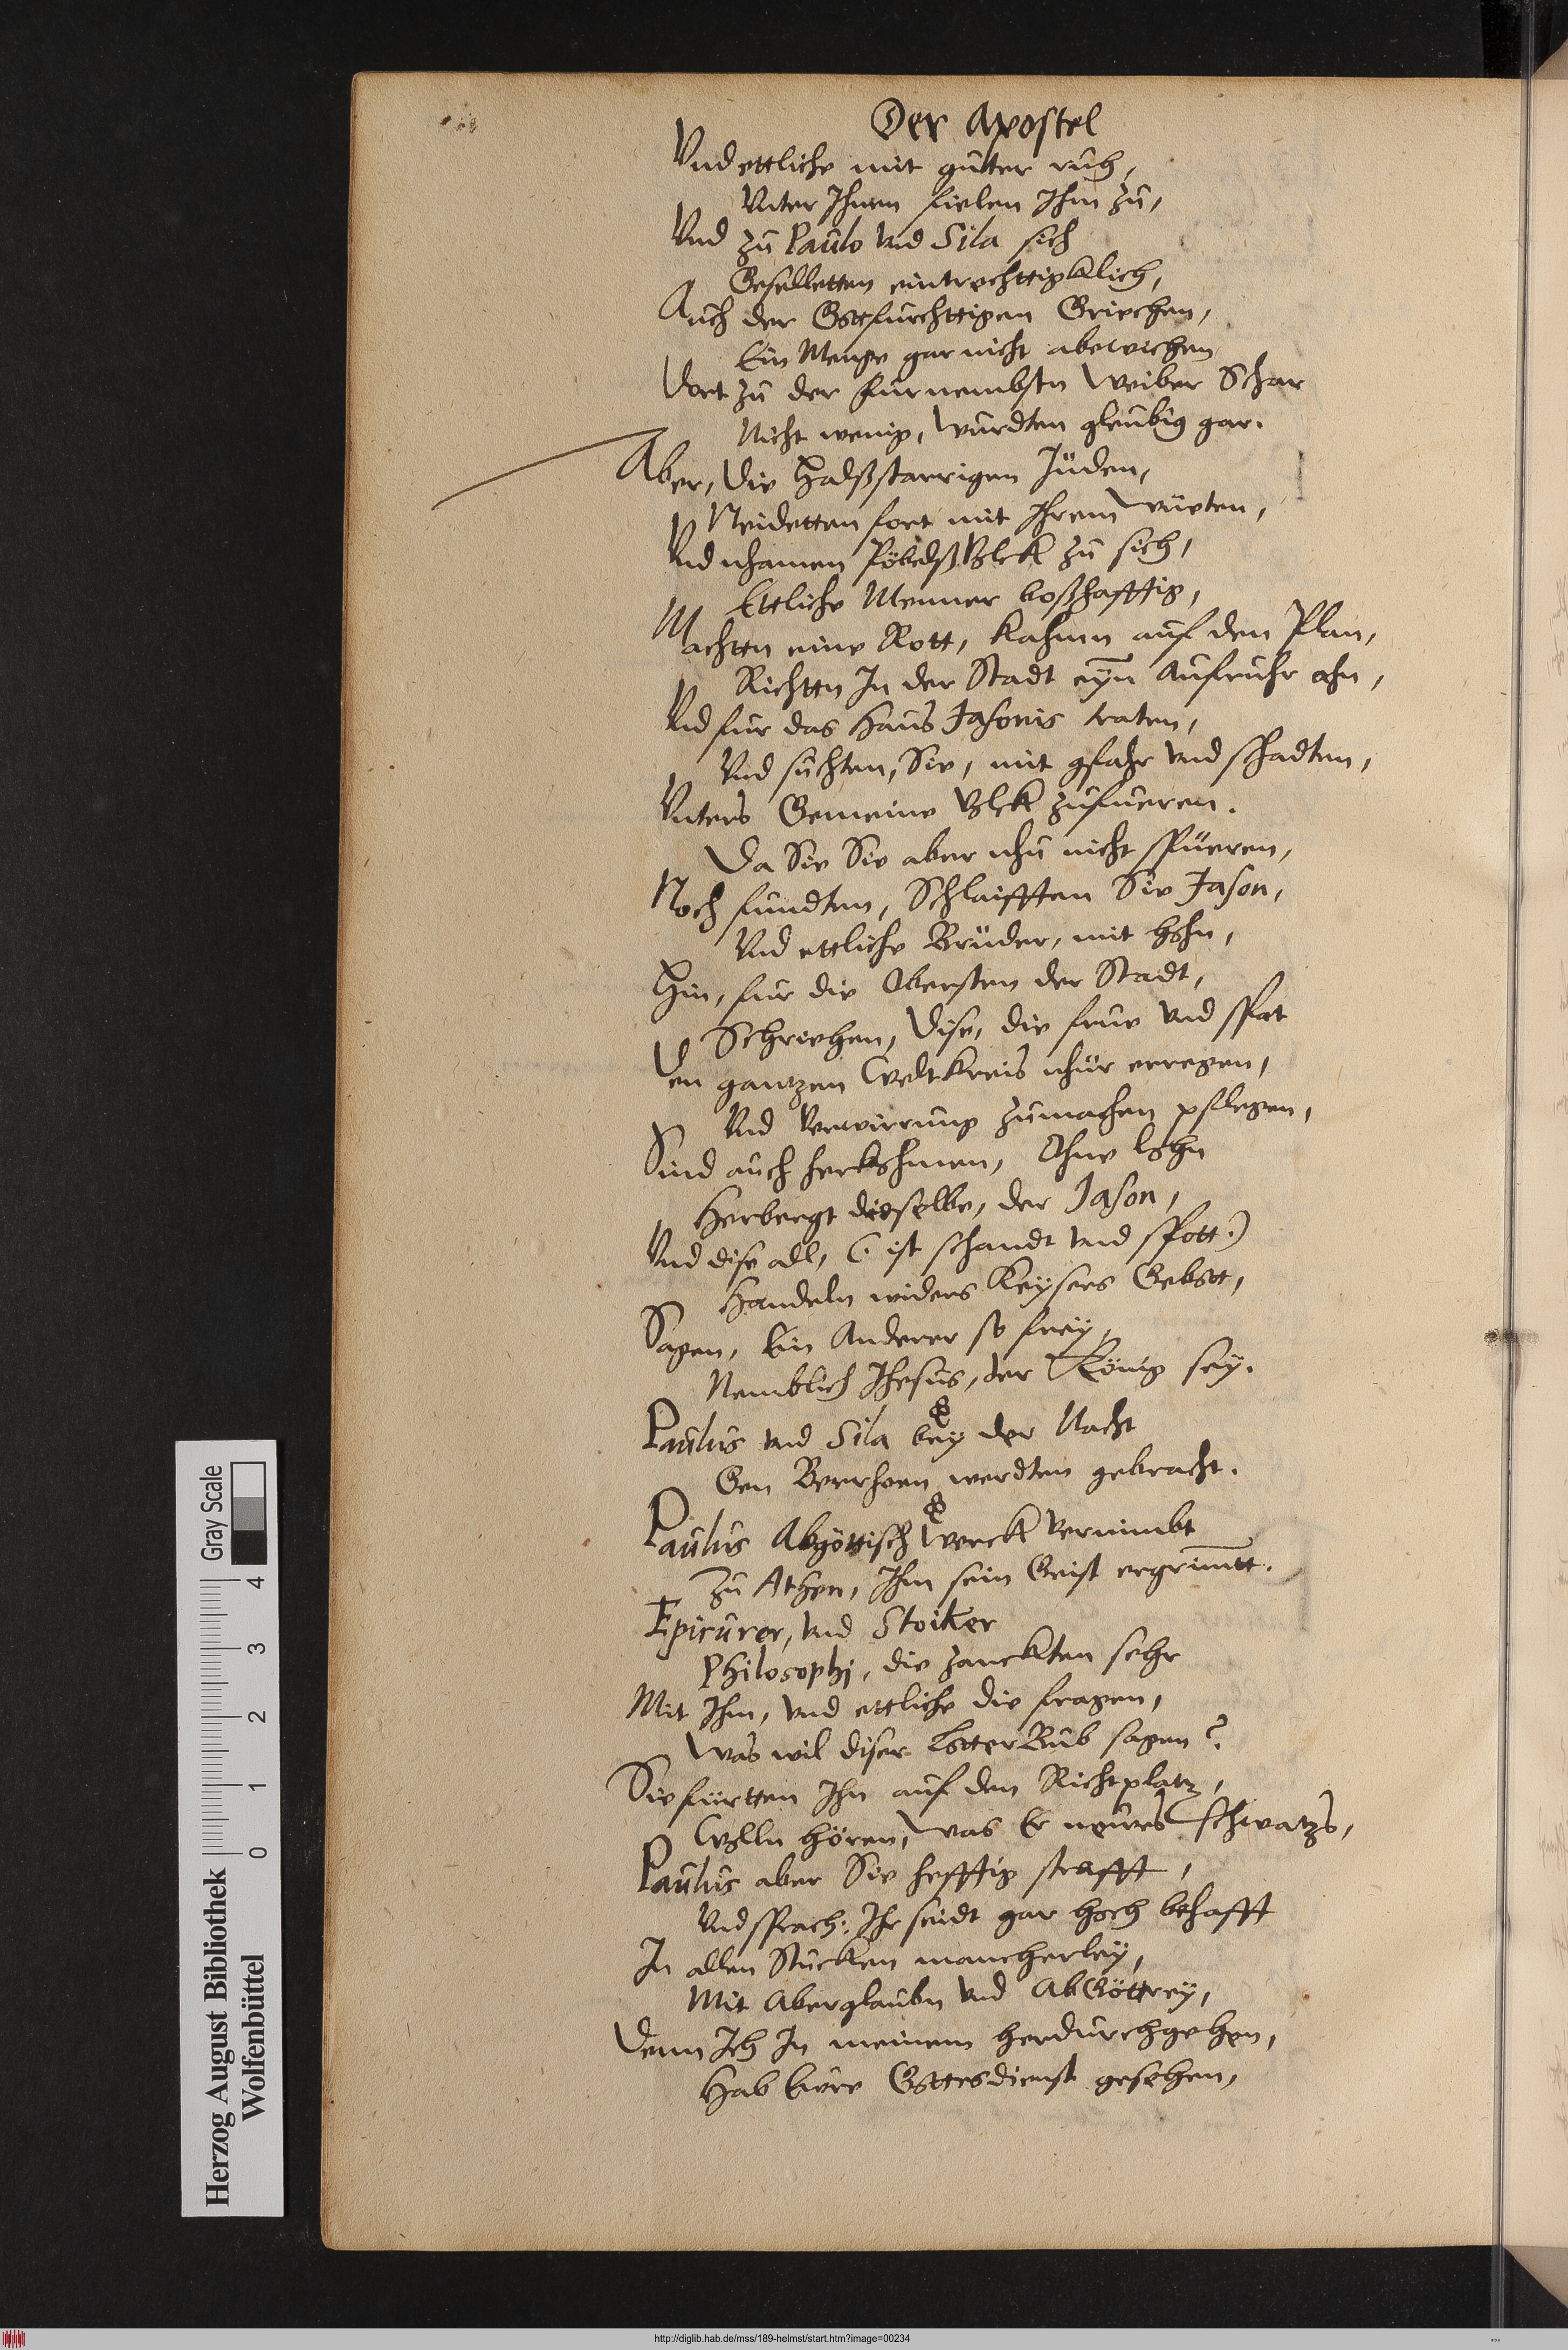 Der Apostel
Vnd ettliche mit gutter ruh,
Vnter Ihnen fielen Ihm zu,
Vnd zu Paulo vnd Sila sich
Geselletten eintrechttigklich,
Auch der Gottfurchttigen Griechen,
Ein Menge gar nicht abewichen
Dort zu der furnembstn Weiber Schar
Nicht wenig, wurdten gleubig gar.
Aber, die Halßstarrigen Jüden,
Neidetten fort mit Ihrem wüeten,
Vnd nhamen PöbelßVolck zu sich,
Ettliche Menner boßhafftig,
Machttn eine Rott, kahmn auf den Plan,
Richttn In der Stadt eÿn Aufruhr ahn,
Vnd fur das Haus Jasonis traten,
Vnd suchten, Sie, mit gfahr vnd schadten,
Vnters Gemeine Volck zufueren.
Da Sie Sie aber nhu nicht spüeren,
Noch fundten, Schlaifften Sie Jason,
Vnd ettliche Brüder, mit hohn,
Hin, fur die Obersten der Stadt,
Schriehen, Dise, die frue vnd spat
Den gantzen Weltkreis nhür erregen,
Vnd Verwirrung zumachen pflegen,
Sind auch herkohmen, Ohne lohn
Herbergt dieselbe, der Jason,
Vnd dise all, (: ist schandt vnd spott:)
Handeln widers Keÿsers Gebott,
Sagen, Ein Anderer so freÿ,
Nemblich Jhesus, der König seÿ.
Paulus vnd Sila beÿ der Nacht
Gen Berrhoen werdten gebracht.
Paulus Abgöttisch Werck vernimbt
Zu Athen, Ihm sein Geist ergrimtt.
Epicurer, vnd Stoiker
Philosophj, die zanckten sehr
Mit Ihm, vnd ettliche die fragen,
Was wil diser LotterBub sagen?
Sie fürtten Ihn auf den Richtplatz,
Wolln hören, was Er neues schwatzs,
Paulus aber Sie hefftig strafft,
Vnd sprach: Ihr seidt gar hoch behafft
In allen Stucken mancherleÿ,
Mit Aberglaubn vnd AbGöttreÿ,
Denn Ich In meinem herdurchgehen,
Hab Euere Gottesdienst gesehen,
Herzog August Bibliothek
Wolfenbüttel
Gray Scale
0 1 2 3 4
http://diglib.hab.de/mss/189-helmst/start.htm?image=00234